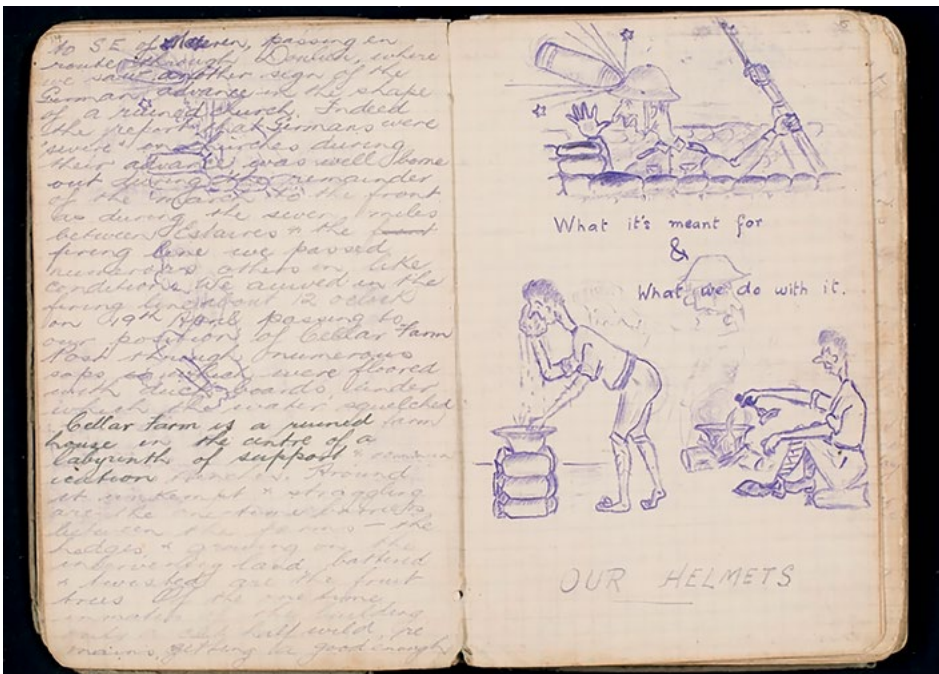 to S.E. of Meteren, passing en
route through Doulieu, where
we saw another sign of the
German advance in the shape
of a ruined church. Indeed
the report that Germans were
"severe" on churches during
their advance was well borne
out during the remainder
of the march to the front
as during the seven miles
between Estaires & the front
firing line we passed
numerous others in like
condition. We arrived in the
firing line about 12 oclock
on 19th April passing to
our position of Cellar Farm
Post through numerous
saps which were floored
with duck boards under
which the water squelched
Cellar Farm is a ruined farm
house in the centre of a
labyrinth of support &
ication trenches. Around
it unkempt & straggling
are the
between the farms - the
hedges & growing on the
intervening land, battered
& twisted are the fruit
trees Of the one time
inmates of the building
only a cat, half wild, re
mains, getting a good enough
5
What it's meant for
&
What we do with it.
OUR HELMETS